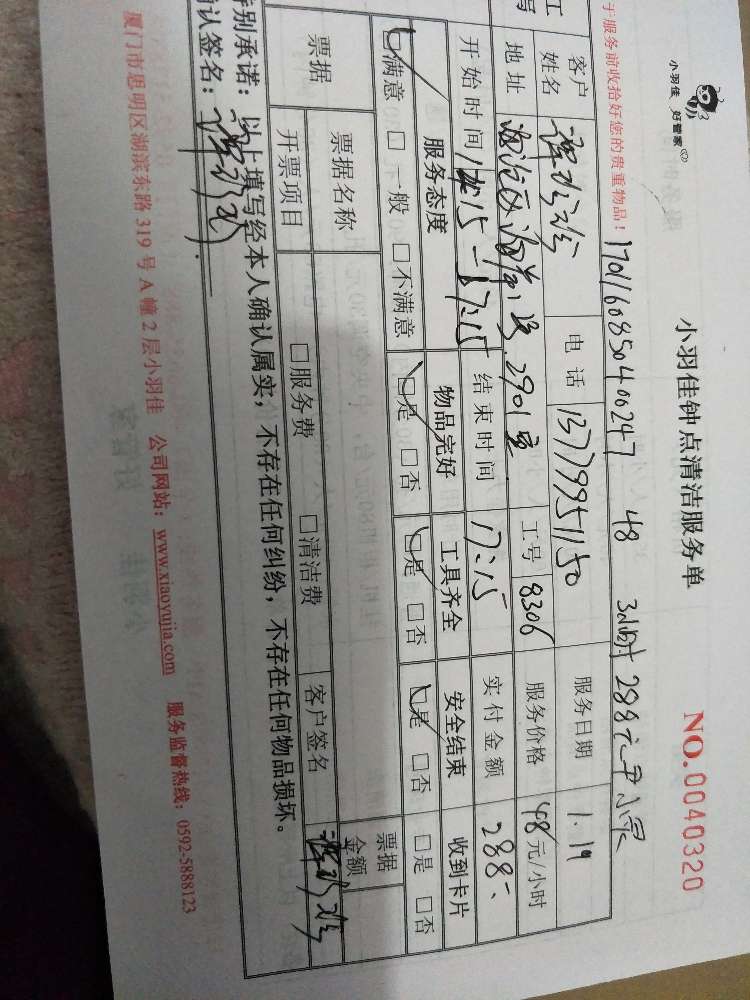 小羽佳 好管家
小羽佳钟点清洁服务单
NO.0040320
于服务前收拾好您的贵重物品！
1701160850400247 48 3小时 288元
工 客户姓名 电话 13779951150 服务日期 1.19
写 地址 2901室 工号 8306 服务价格 48元/小时
开始时间 14:15-17:15 结束时间 17:15 实付金额 288
服务态度 物品完好 工具齐全 安全结束 收到卡片
☑满意 □一般 □不满意 ☑是 □否 ☑是 □否 ☑是 □否 □是 □否
票据 票据名称 票据金额
开票项目 □服务费 □清洁费 客户签名
特别承诺：以上填写经本人确认属实，不存在任何纠纷，不存在任何物品损坏。
确认签名：
厦门市思明区湖滨东路319号A幢2层小羽佳 公司网站：www.xiaoyujia.com 服务监督热线：0592-5888123